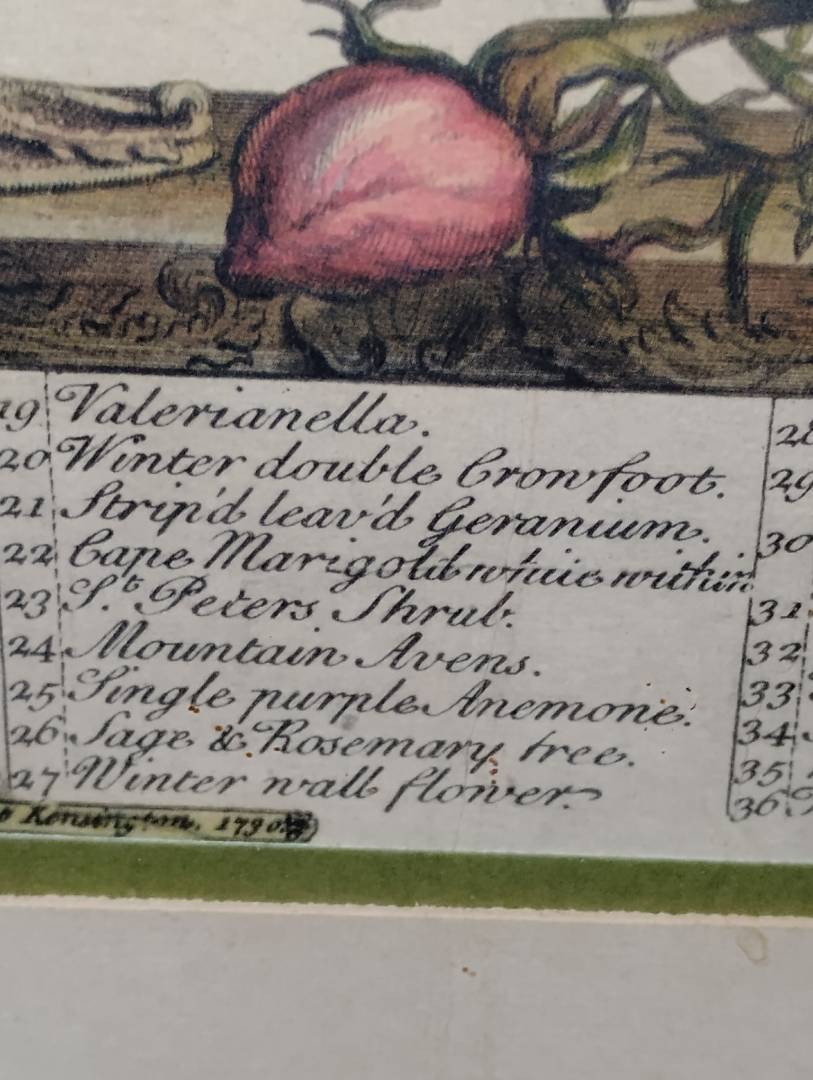 19 Valerianella.
20 Winter double Crowfoot.
21 Strip'd leav'd Geranium.
22 Cape Marigold white within
23 S.t Peters Shrub.
24 Mountain Avens.
25 Single purple Anemone.
26 Sage & Rosemary tree.
27 Winter wall flower.
28
29
30
31
32
33
34
35
36
Kensington. 1730